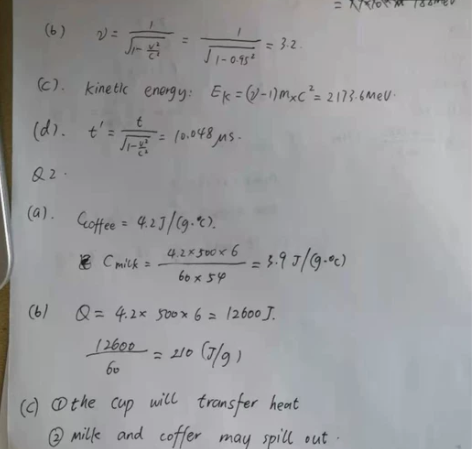 (b) γ = 1/√(1-v²/c²) = 1/√(1-0.95²) = 3.2.
(c). kinetic energy: Ek = (γ-1)mxc² = 2173.6MeV.
(d). t' = t/√(1-v²/c²) = 10.048 μs.
Q2.
(a). Ccoffee = 4.2J/(g·°C).
Cmilk = 4.2×500×6/60×54 = 3.9 J/(g·°C)
(b) Q = 4.2× 500×6 = 12600J.
12600/60 = 210 (J/g)
(c) ① the cup will transfer heat
② milk and coffer may spill out.